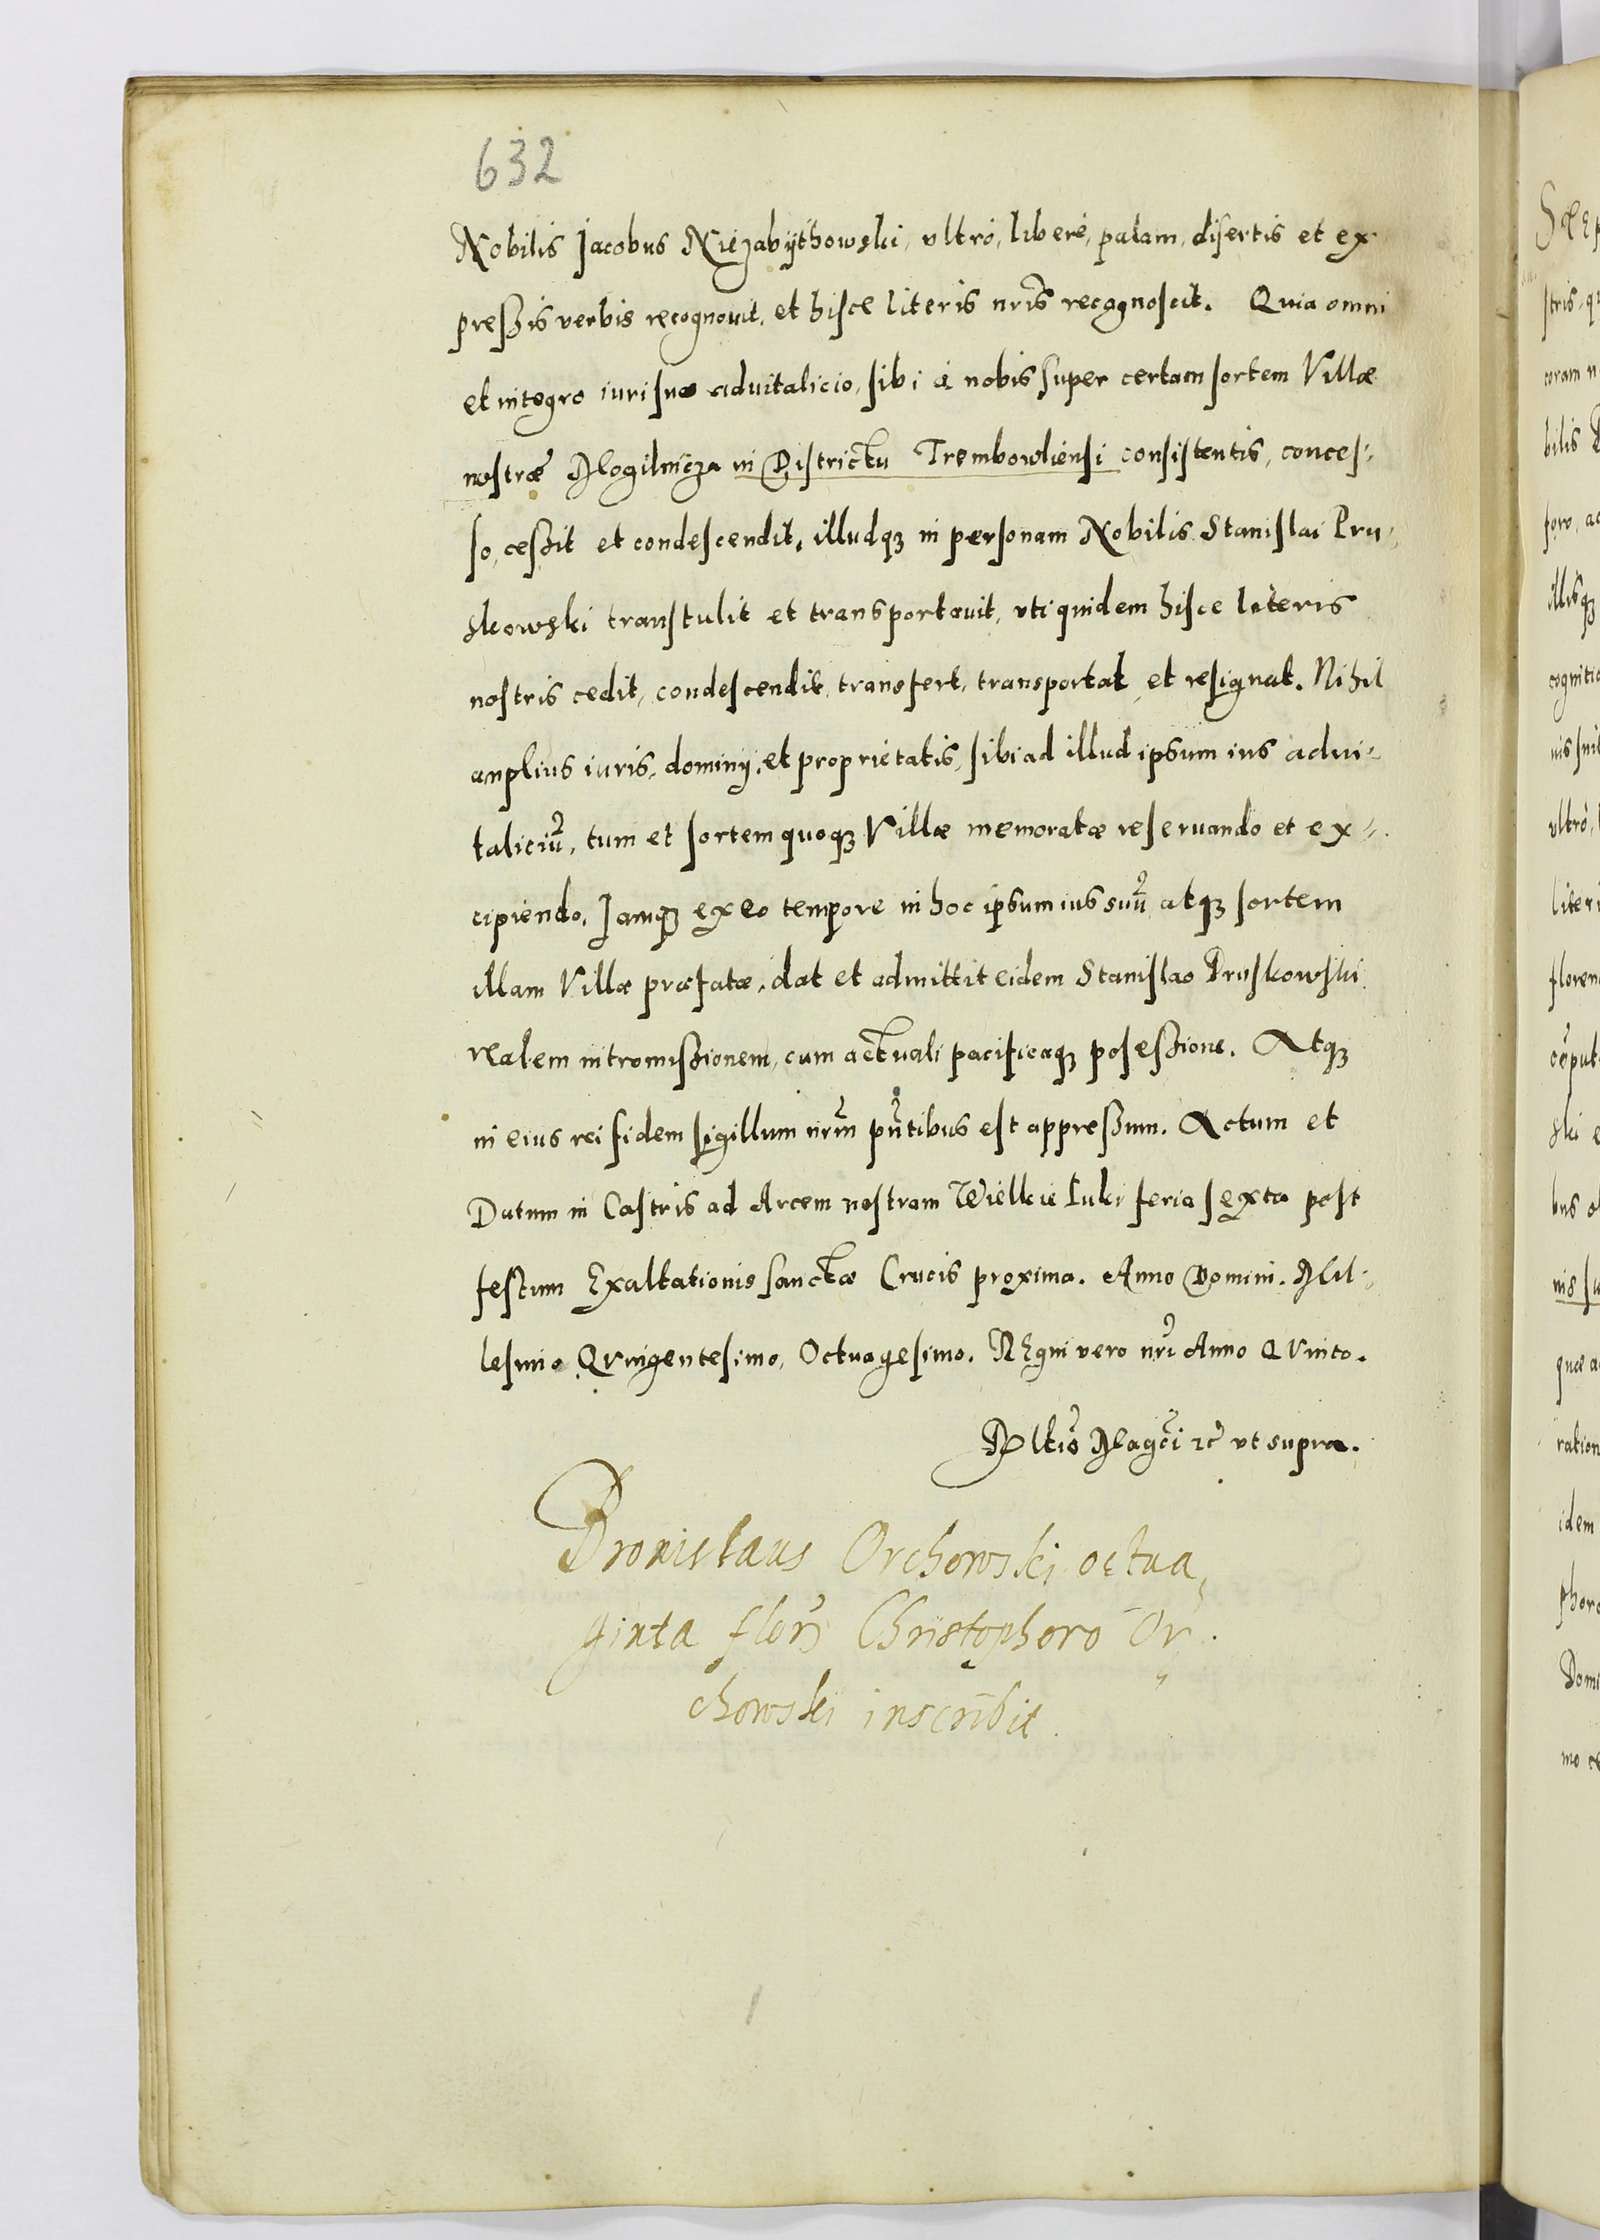 632
Nobilis Jacobus Niezabythowski, vltrò, liberè, palam, disertis et ex
preßis verbis recognouit, et hisce literis nr̃is recognoscit. Quia omni
et integro iuri suo aduitalicio, sibi à nobis super certam sortem Villæ
nostræ Mogilnicza in Districtu Trembowliensi consistentis, conces:,
so, ceßit et condescendit, illudq3 in personam Nobilis Stanislai Pru:,
skowski transtulit et transportauit, vti quidem hisce literis
nostris cedit, condescendit, transfert, transportat, et resignat. Nihil
amplius iuris, dominij, et proprietatis, sibi ad illud ipsum ius adui:,
taliciũ, tum et sortem quoq3 Villæ memoratæ reseruando et ex:,
cipiendo. Jamq3 ex eo tempore in hoc ipsum ius suũ atq3 sortem
illam Villæ præfatæ, dat et admittit eidem Stanislao Pruskowski
realem intromißionem, cum actuali pacificaq3 poseßione. Atq3
in eius rei fidem sigillum nrm̃ pñtibus est appreßum. Actum et
Datum in Castris ad Arcem nostram Wielkie Luki feria sexta post
festum Exaltationis sanctæ Crucis proxima. Anno Domini. Mil:,
lesimo Quingentesimo, Octuagesimo. REgni vero nr̃i Anno Quinto.
Rltio Magci rc̃ vt supra.
Bronislaus Orchowski octua,
ginta flor̃ Christophoro Or
chowski inscribit.